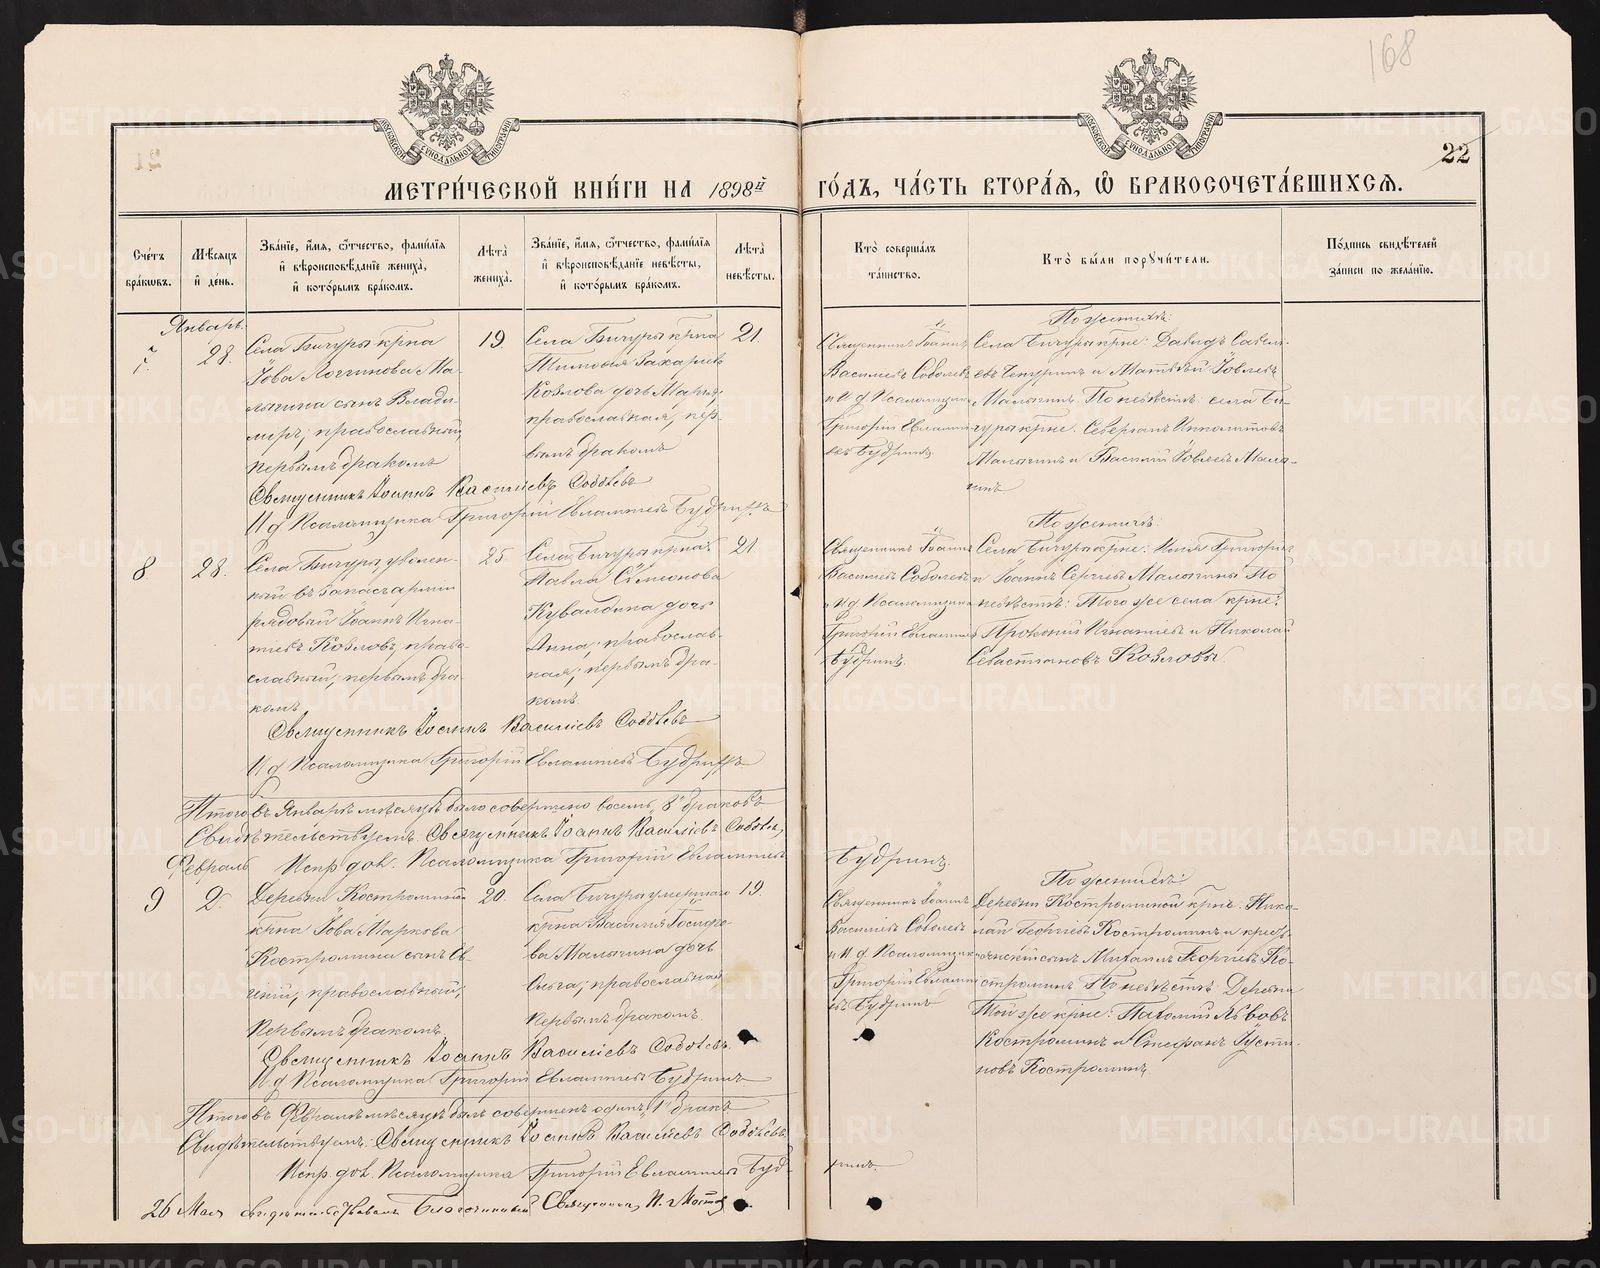 168
22
МЕТРИ́ЧЕСКОЙ КНИ́ГИ НА 1898й ГО́ДЪ, ЧА́СТЬ ВТОРА́Я, Ѡ БРАКОСОЧЕТА́ВШИХСЯ.
Сче́тъ бра́кѡвъ.
Мѣ́сяцъ и де́нь.
Зва́нїе, и́мя, ѻ́тчество, фами́лїя
и вѣроисповѣ́данїе жениха̀,
и кото́рымъ бра́комъ.
Лѣта̀ жениха̀.
Зва́нїе, и́мя, ѻ́тчество, фами́лїя
и вѣроисповѣ́данїе невѣ́сты,
и кото́рымъ бра́комъ.
Лѣта̀ невѣ́сты.
Кто̀ соверша́лъ
та́инство.
Кто̀ бы́ли поручи́тели.
По́дпись свидѣ́телей
за́писи по жела́нїю.
Январь.
7.
28.
Села Бичуры кр̃на
Іова Логгинова Ма-
лыгина сынъ Влади-
міръ; православный,
первымъ бракомъ
19.
Села Бичуры кр̃на
Тимофея Захаріева
Козлова дочь Марія;
православная, пер-
вымъ бракомъ
21.
Священникъ Іоаннъ
Василіевъ Соболевъ
и И д Псаломщика
Григорій Евлампі-
евъ Будринъ.
По женихѣ:
Села Бичуры кр̃не: Давидъ Савель-
евъ Чепуринъ и Матѳей Іовлевъ
Малыгинъ. По невѣстѣ: села Би-
чуры кр̃не: Северіанъ Ипполитовъ
Малыгинъ и Василій Іовлевъ Малы-
гинъ
Священникъ Іоаннъ Василіевъ Соболевъ
И д Псаломщика Григорій Евлампіевъ Будринъ
8
28.
Села Бичуры уволен-
ный въ запасъ арміи
рядовый Іоаннъ Игна-
тіевъ Козловъ, право-
славный; первымъ бра-
комъ
25
Села Бичуры кр̃на
Павла Симеонова
Кувалдина дочь
Анна; православ-
ная; первымъ бра-
комъ.
21.
Священникъ Іоаннъ
Василіевъ Соболевъ
и И д Псаломщика
Григорій Евлампіевъ
Будринъ.
По женихѣ:
Села Бичуры кр̃не: Илія Григоріевъ
и Іоаннъ Сергіевъ Малыгины. По
невѣстѣ: Того же села кр̃не:
Прокопій Игнатіевъ и Николай
Севастіановъ Козловы.
Священникъ Іоаннъ Василіевъ Соболевъ
И д Псаломщика Григорій Евлампіевъ Будринъ
Итого въ Январѣ мѣсяцѣ было совершено восемь „8“ браковъ
Свидѣтельствуемъ: Священникъ Іоаннъ Василіевъ Соболевъ,
Испр. дол. Псаломщика Григорій Евлампіевъ Будринъ.
Февраль
9
2.
Деревни Костроминой
кр̃на Іова Маркова
Костромина сынъ Ев-
геній; православный;
первымъ бракомъ.
20.
Села Бичуры умершаго
кр̃на Василія
Малыгина дочь
Ольга; православная
первымъ бракомъ.
19.
Священникъ Іоаннъ
Василіевъ Соболевъ
и И. д. Псаломщика
Григорій Евлампі-
евъ Будринъ
По женихѣ:
Деревни Костроминой кр̃не: Нико-
лай Георгіевъ Костроминъ и кресть-
янскій сынъ Михаилъ Георгіевъ Ко-
строминъ. По невѣстѣ: Деревни
Той же кр̃не: Пахомій Львовъ
Костроминъ и Стефанъ Іусти-
новъ Костроминъ.
Священникъ Іоаннъ Василіевъ Соболевъ.
И д Псаломщика Григорій Евлампіевъ Будринъ
Итого въ Февралѣ мѣсяцѣ былъ совершенъ одинъ „1“ бракъ
Свидѣтельствуемъ: Священникъ Іоаннъ Василіевъ Соболевъ.
Испр. дол. Псаломщика Григорій Евлампіевъ Будринъ.
26 Мая свидѣтельствовалъ Благочинный Священникъ П.
METRIKI.GASO-URAL.RU